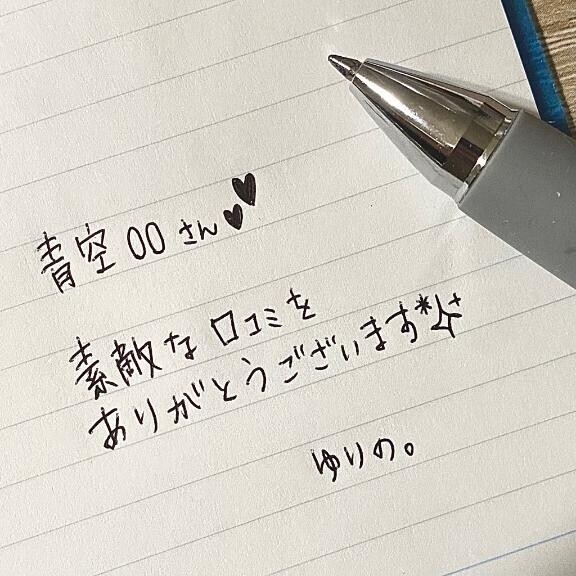 青空00さん♥♥
素敵な口コミを
ありがとうございます*☆
ゆりの。